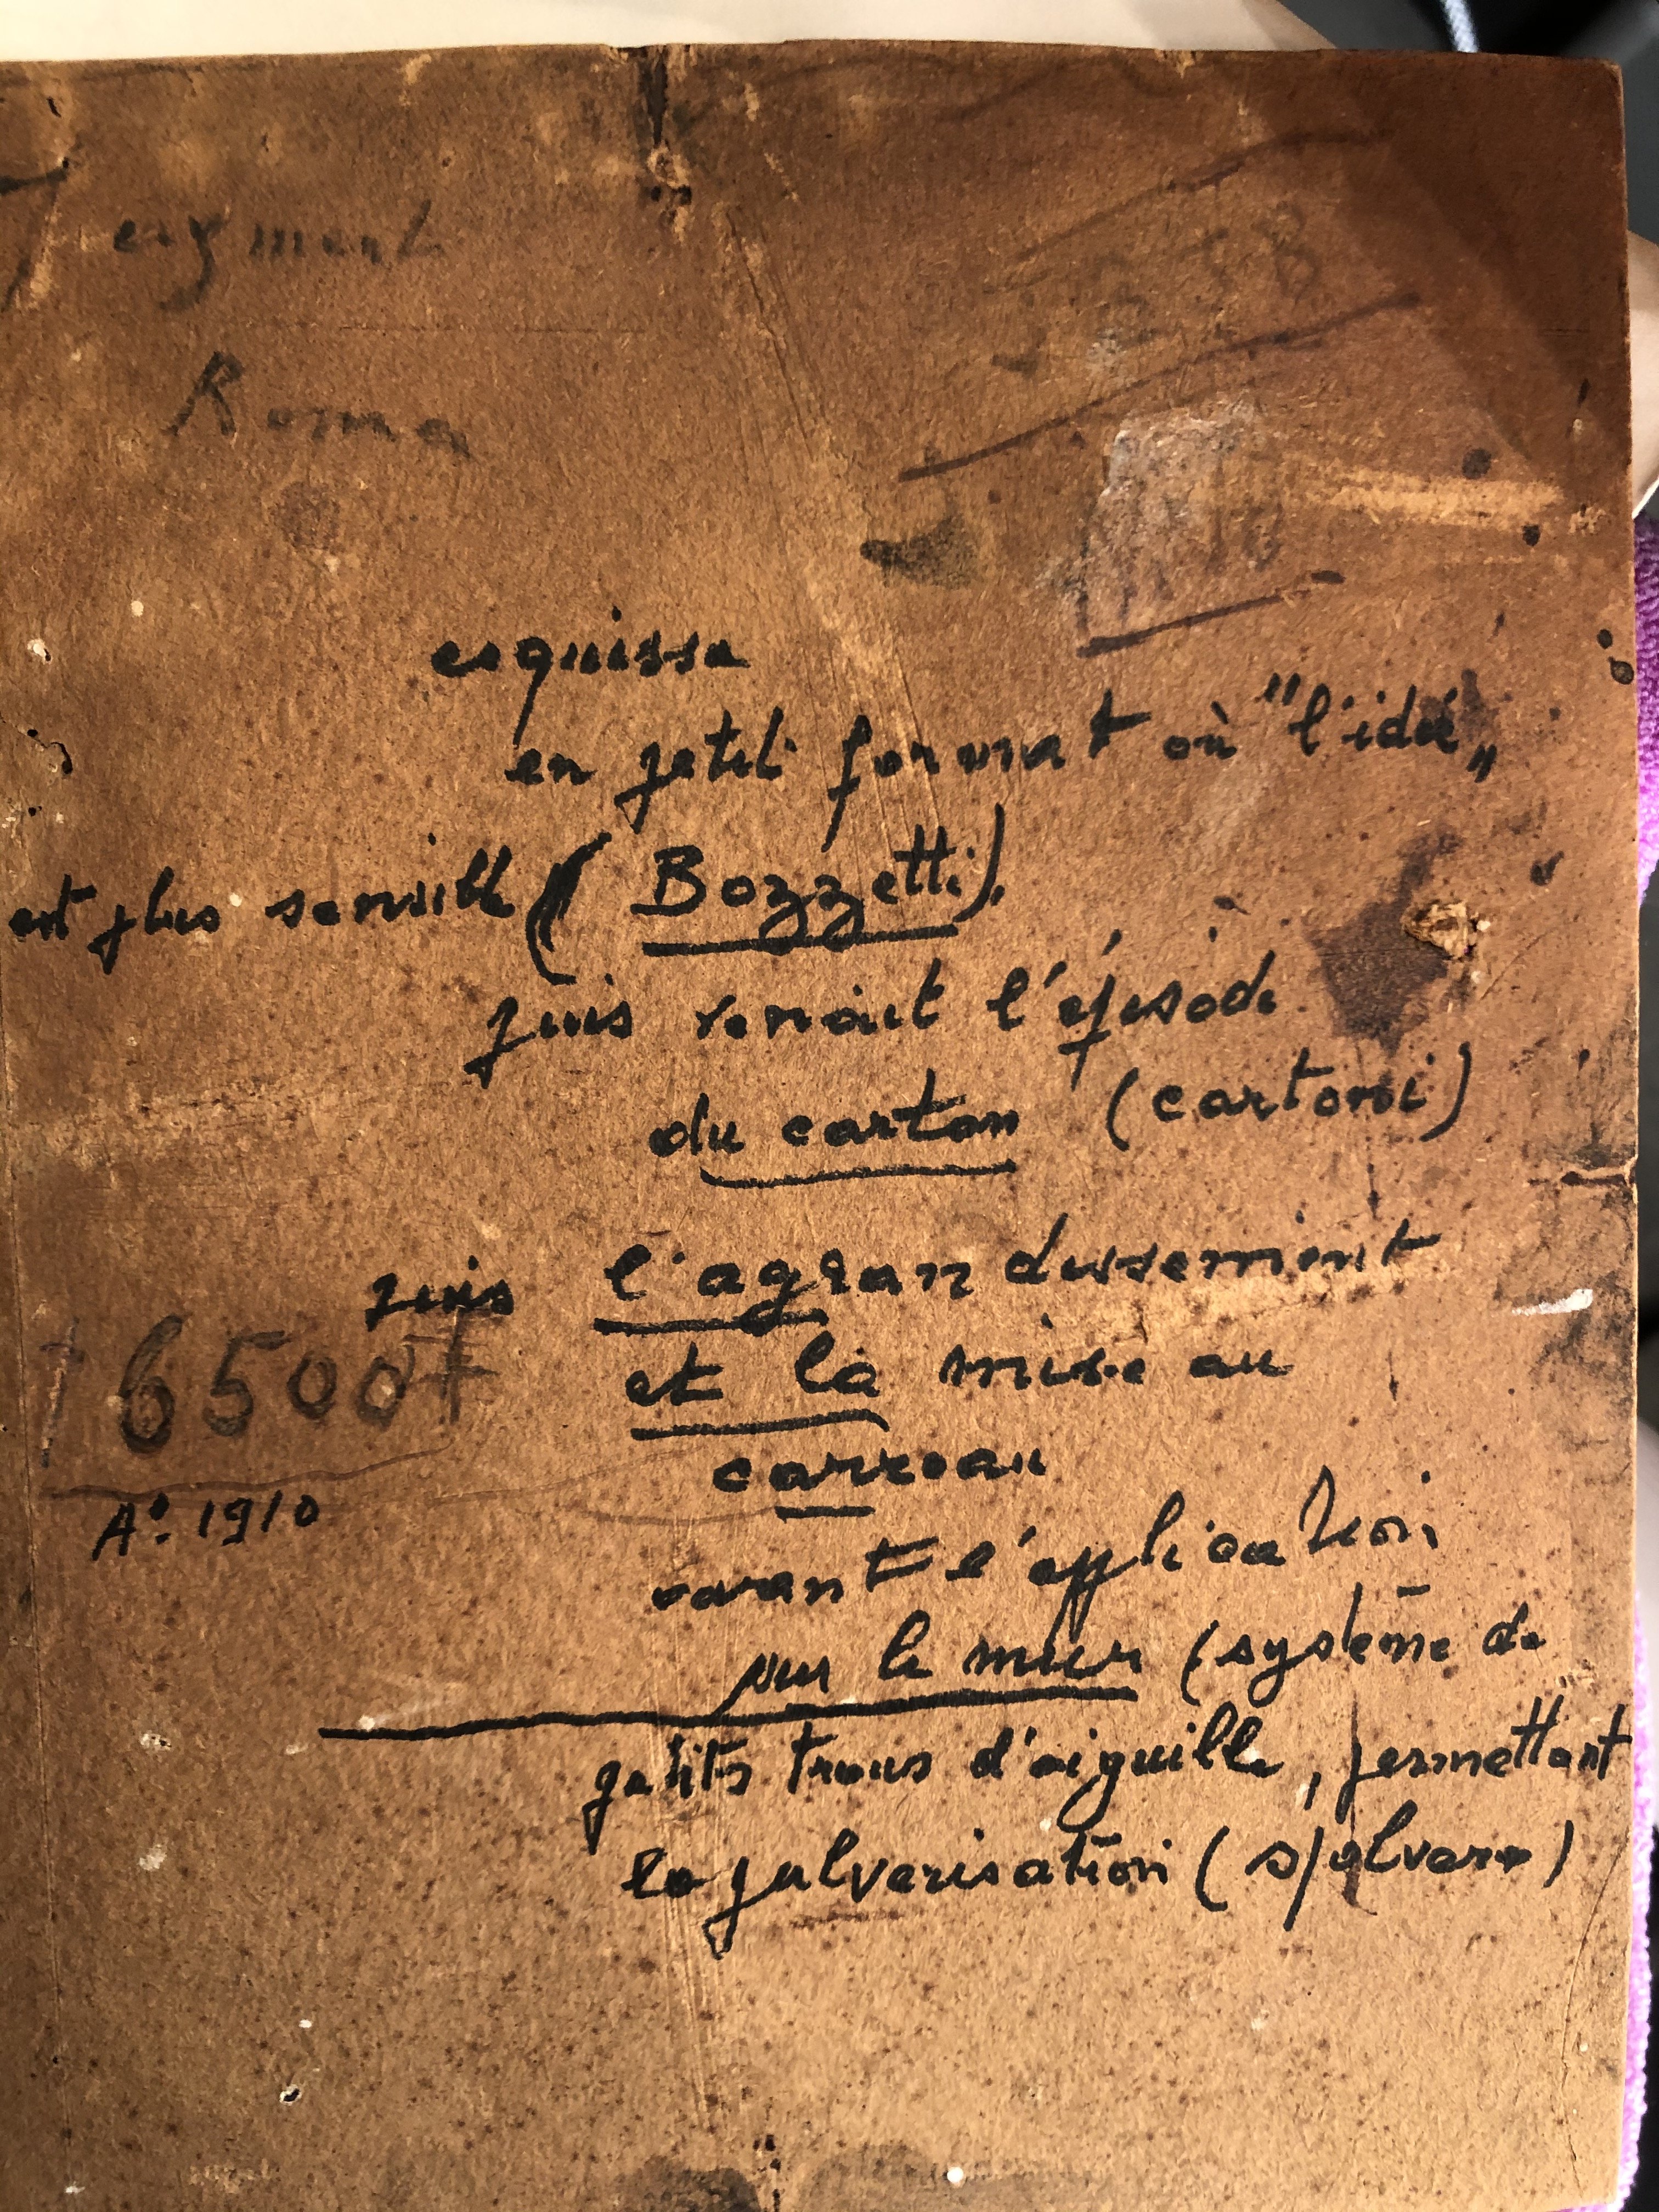 Roma
esquisse
en petit format où "l'idée„
est plus sensible ( Bozzetti).
puis venait l'épisode
du carton (cartoni)
puis l'agrandissement
et la mise au
carreau
6500F
A°. 1910
avant l'application
sur le mur (système de
petits trous d'aiguille, permettant
la pulvérisation ( spolvero )